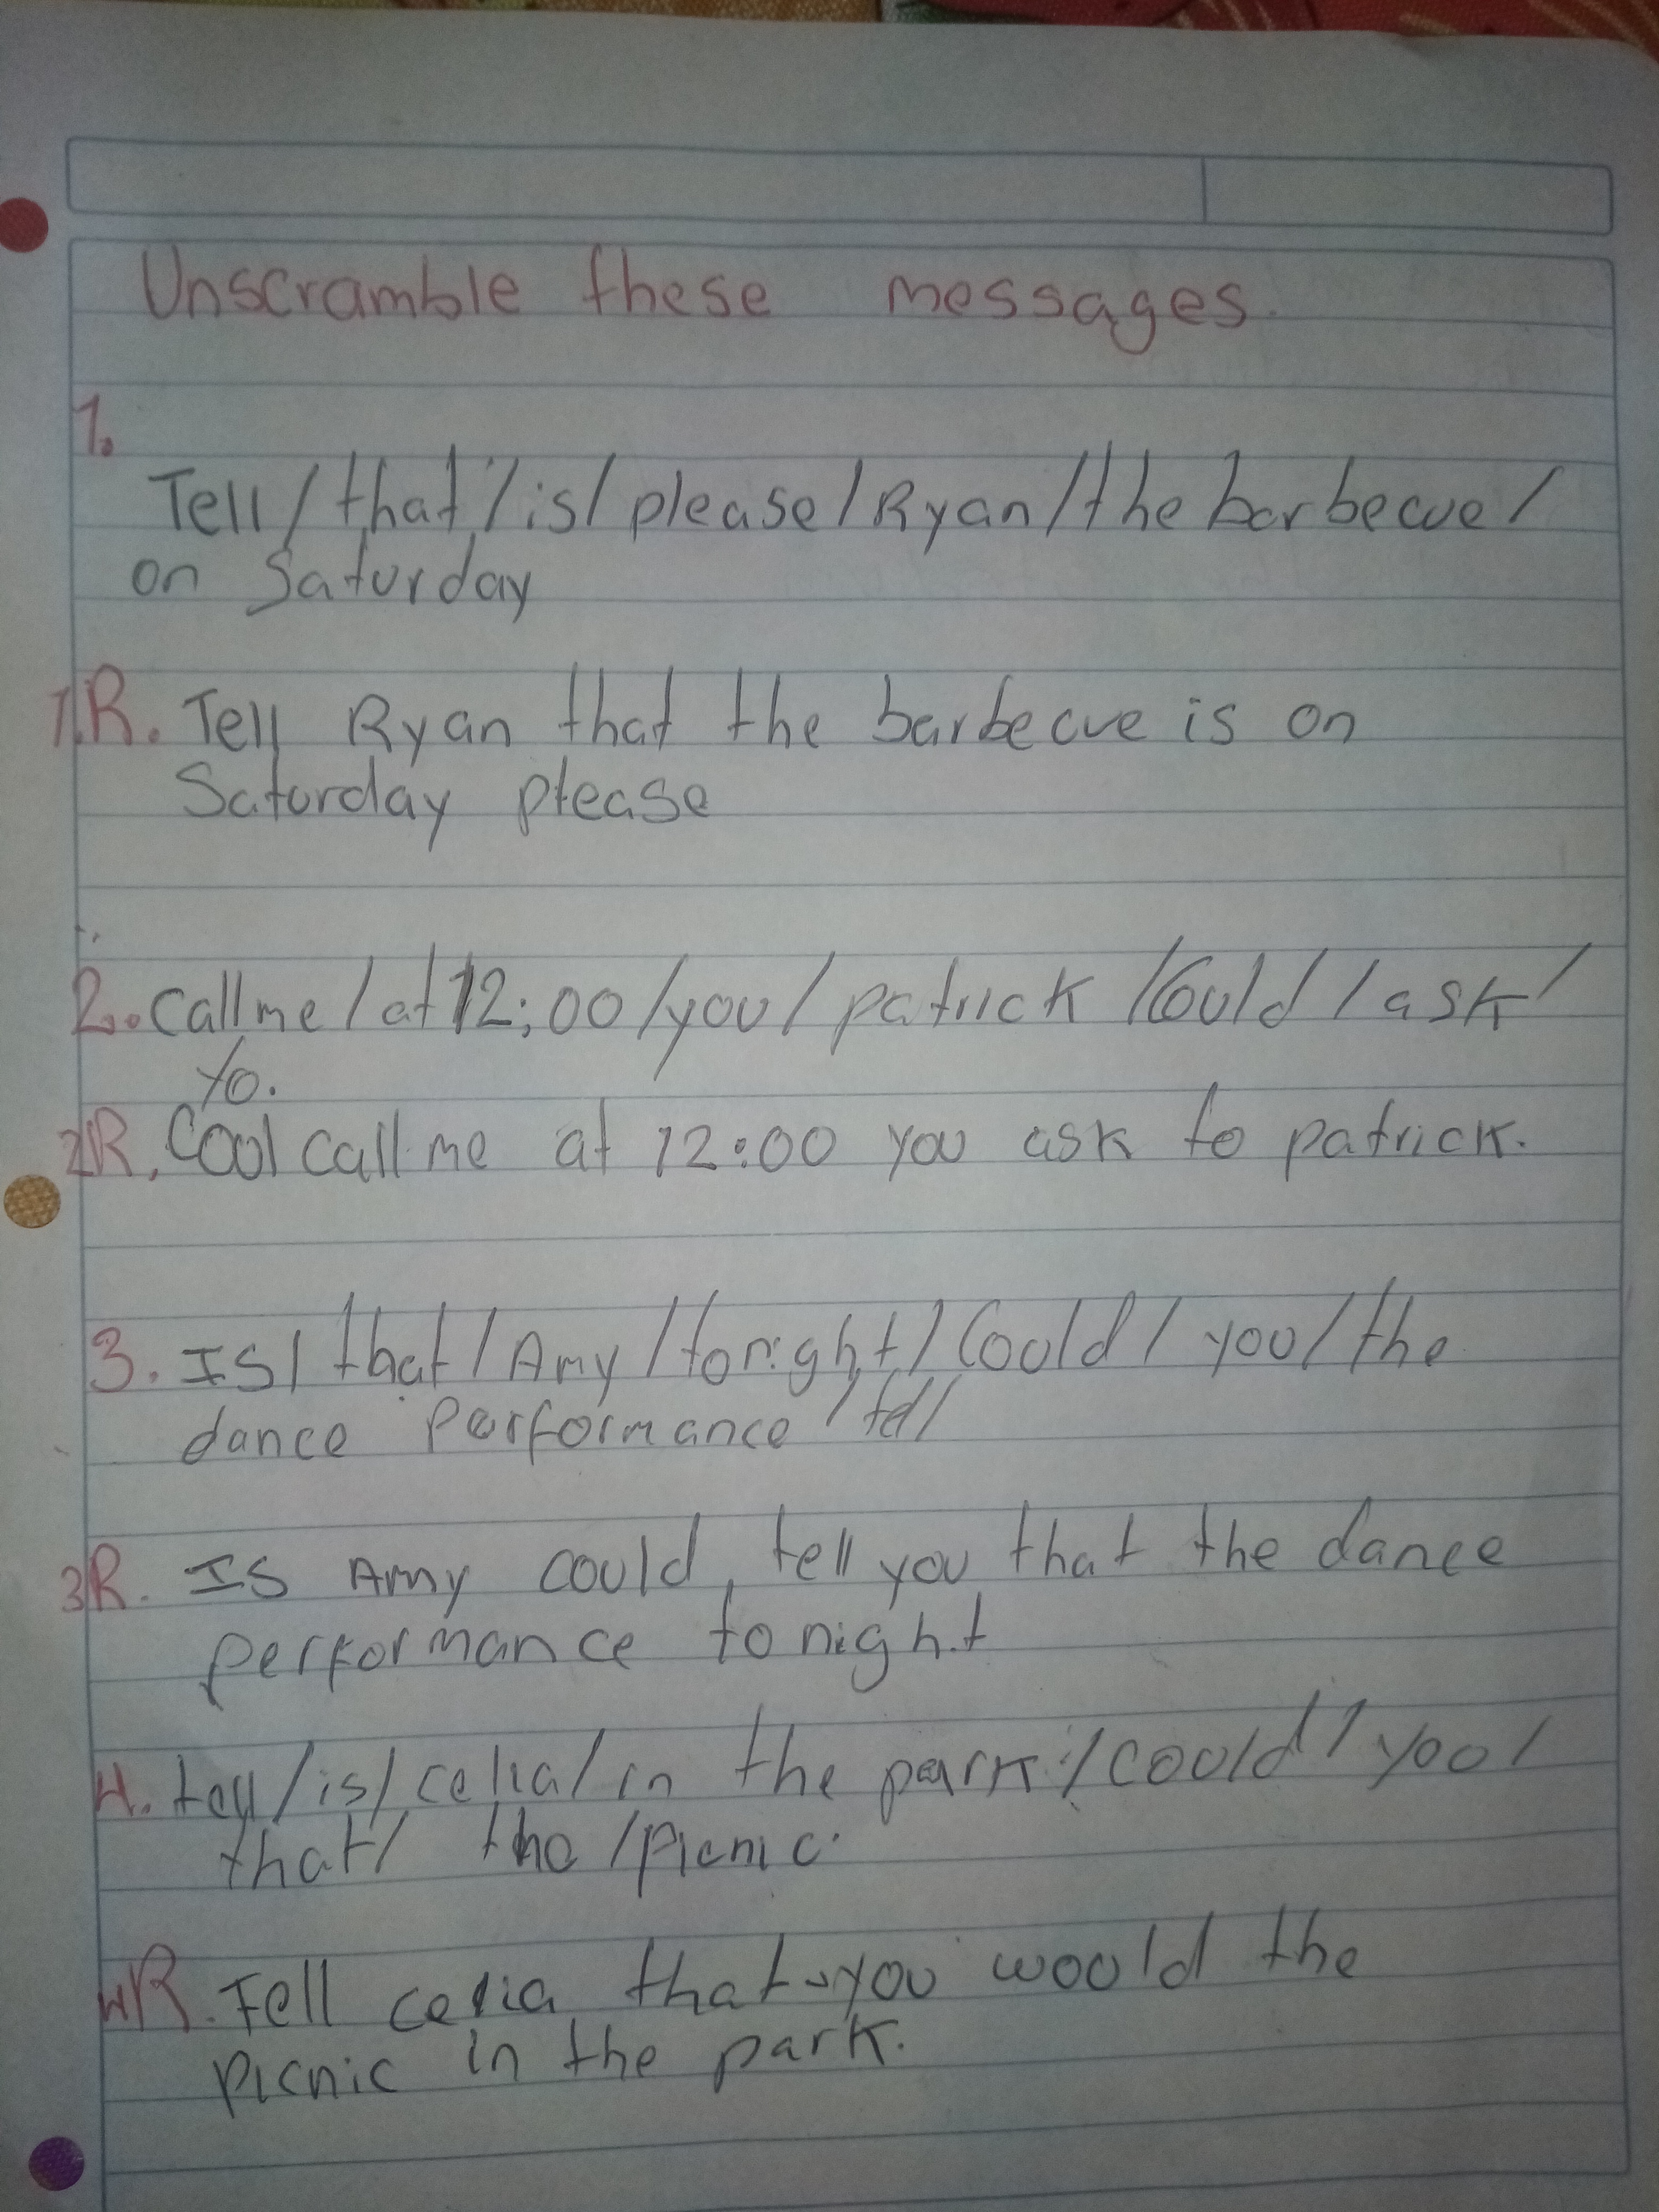 Unscramble these messages.
1.
Tell / that / is / please / Ryan / the barbecue /
on Saturday
1R. Tell Ryan that the barbecue is on
Saturday please
2. Call me / at 12:00 / you / patrick / Could / ask /
to.
2R. Cool call me at 12:00 you ask to patrick.
3. IS / that / Amy / tonight / Could / you / the
dance Performance / tell
3R. IS Amy could, tell you that the dance
performance tonight
4. tell / is / celia / in the park / could / you /
that / the / Picnic.
4R. Tell celia that you would the
picnic in the park.